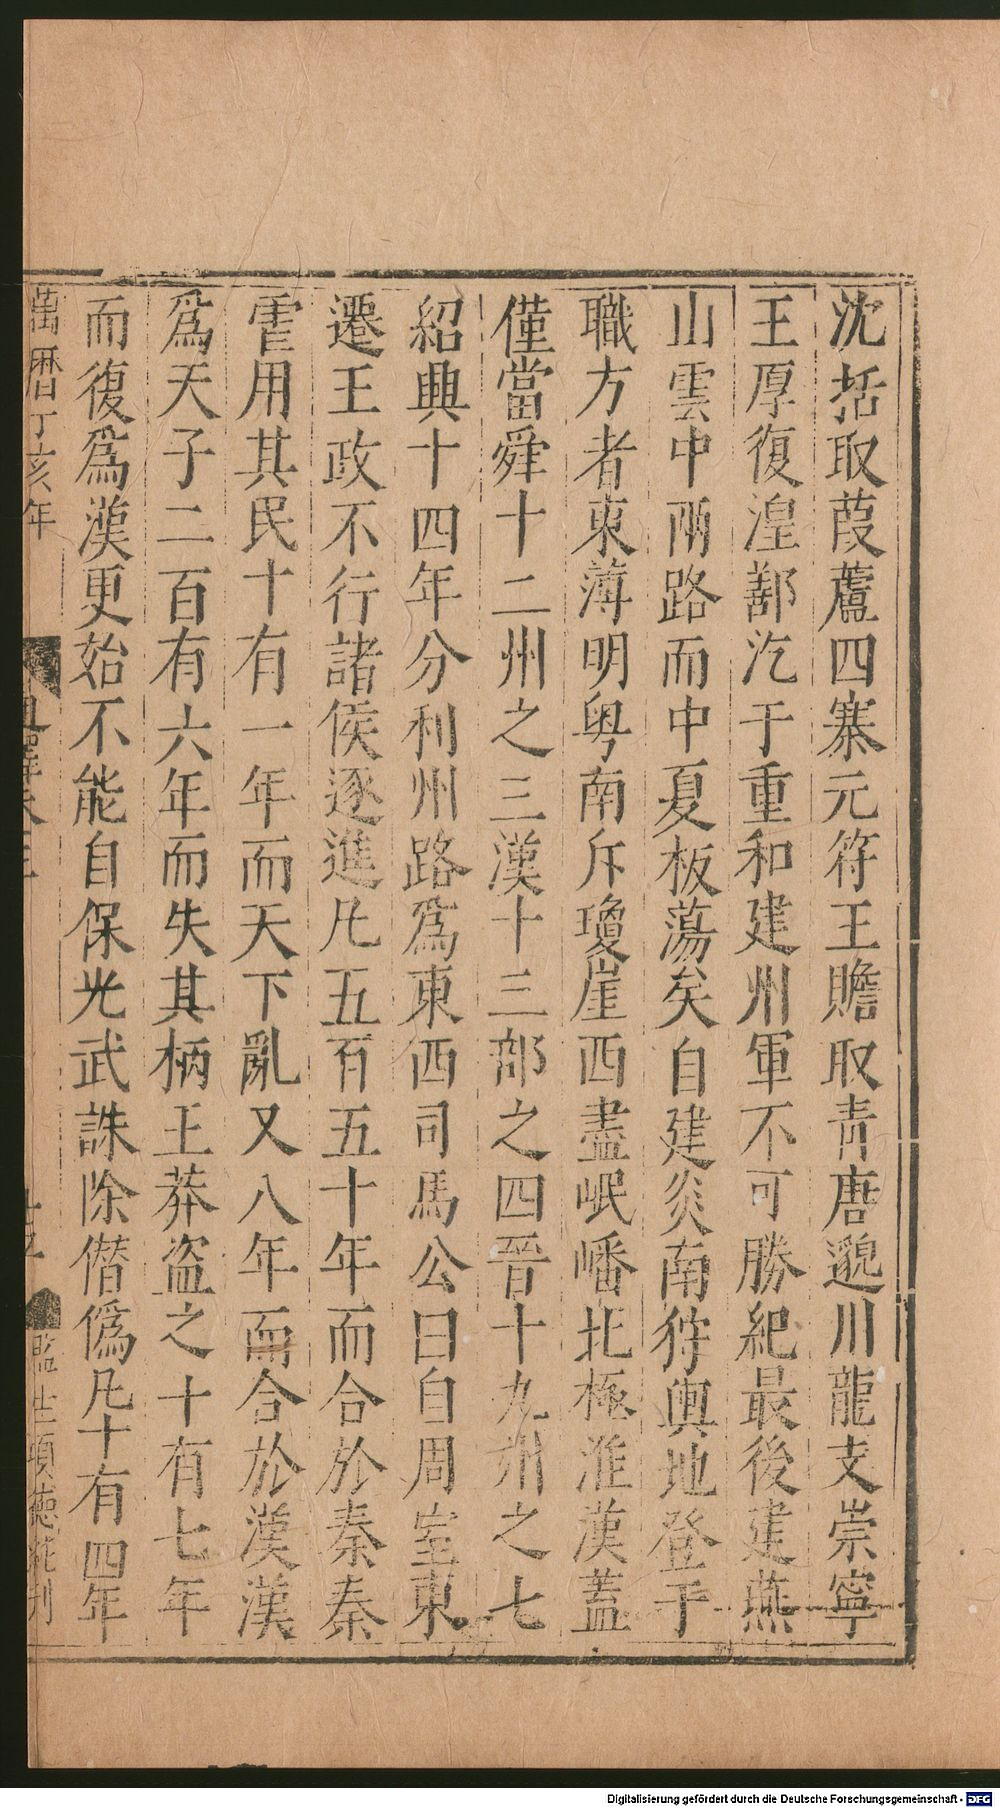 沈括取葭蘆四寨元符王贍取靑唐邈川龍支崇寧
王厚復湟鄯汔于重和建州軍不可勝紀最後建燕
山雲中兩路而中夏板蕩矣自建炎南狩輿地登于
職方者東薄明粤南斥瓊崖西盡岷嶓北極淮漢蓋
僅當舜十二州之三漢十三部之四晉十九州之七
紹興十四年分利州路爲東西司馬公曰自周室東
遷王政不行諸侯逐進凡五百有五十年而合於秦秦
虐用其民十有一年而天下亂又八年而合於漢漢
爲天子二百有六年而失其柄王莽盜之十有七年
而復爲漢更始不能自保光武誅除僭僞凡十有四年
萬曆丁亥年
十五
監生項德刋
Digitalisierung gefördert durch die Deutsche Forschungsgemeinschaft - DFG